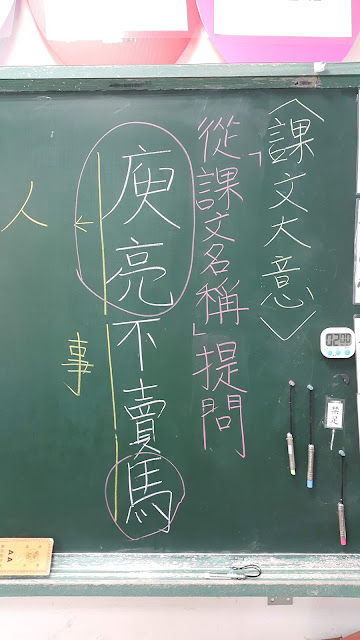 〈課文大意〉
從「課文名稱」提問
庾亮不賣馬
事
人
02:00
禁足
AA